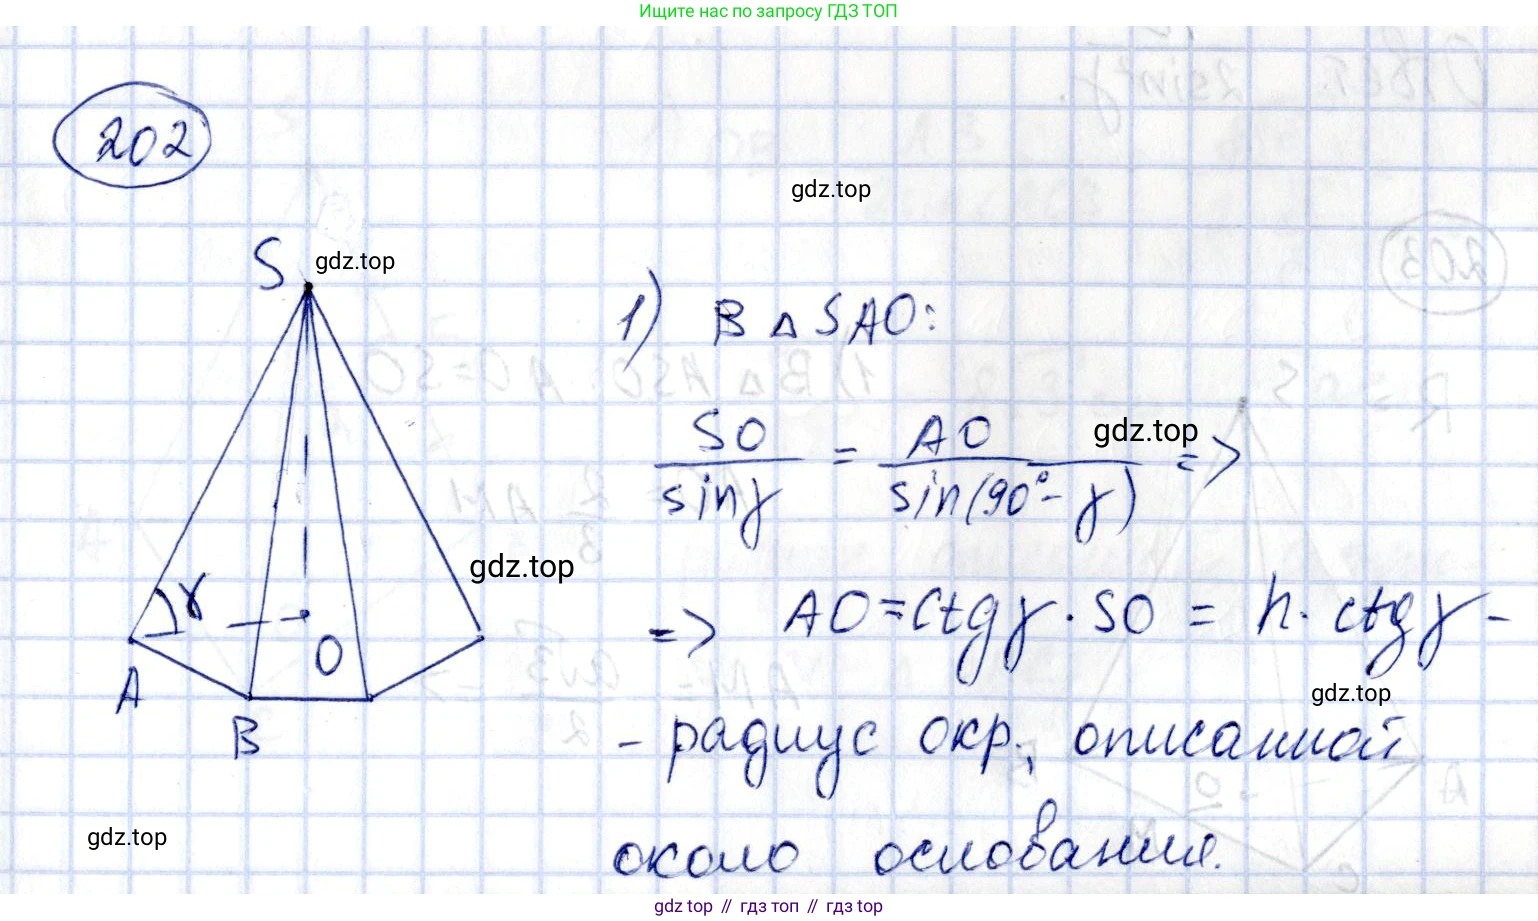 Ищите нас по запросу ГДЗ ТОП
202
gdz.top
S
gdz.top
1) В △ SAO:
SO / sinγ = AO / sin(90° - γ) =>
gdz.top
γ
gdz.top
=> AO = ctgγ · SO = h · ctgγ -
O
A
gdz.top
B
- радиус окр., описанной
gdz.top
около основания.
gdz top // гдз топ // gdz top